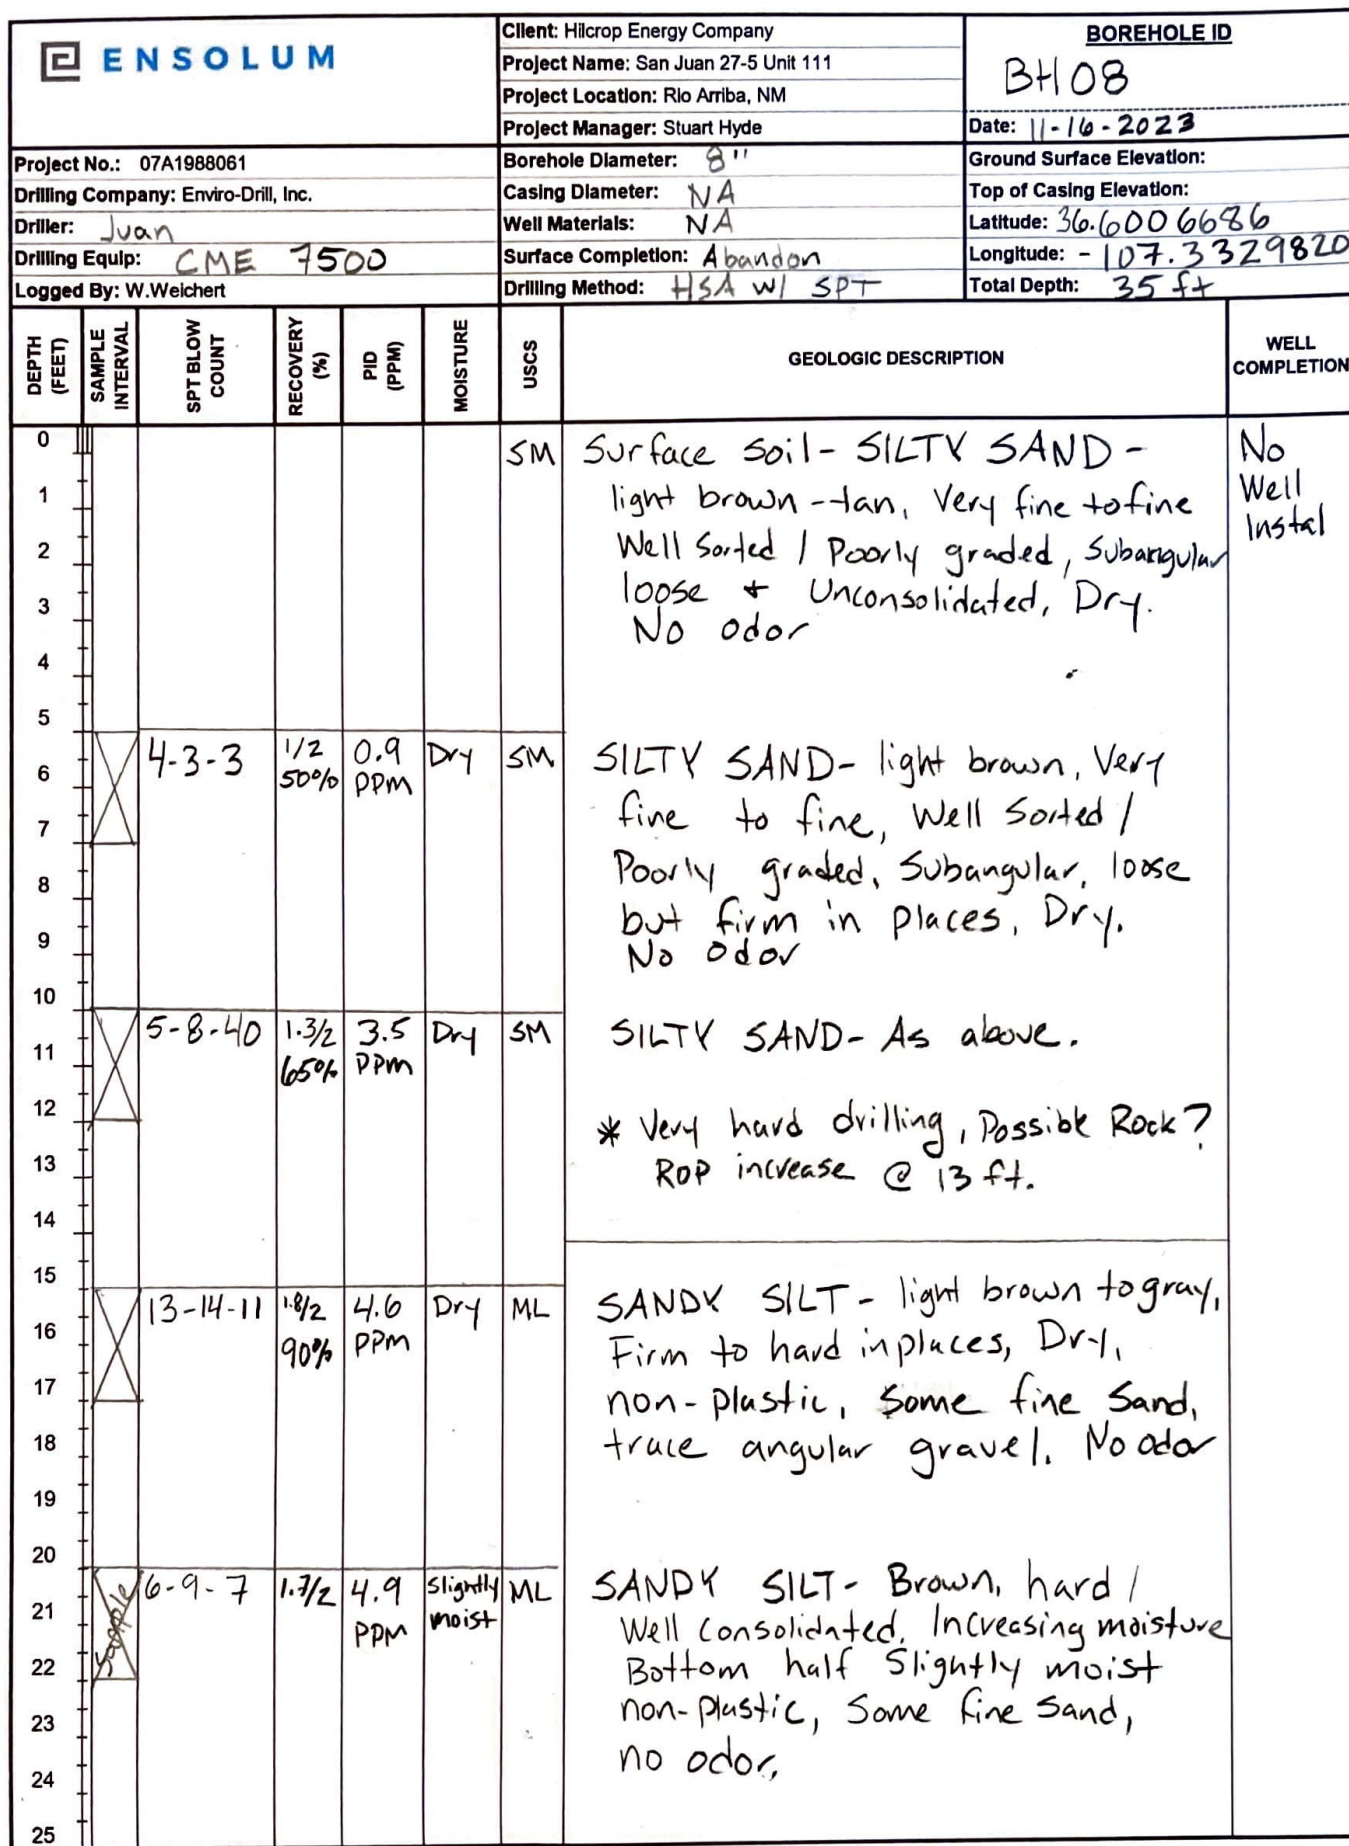 ENSOLUM
Client: Hilcrop Energy Company
Project Name: San Juan 27-5 Unit 111
Project Location: Rio Arriba, NM
Project Manager: Stuart Hyde
BOREHOLE ID
BH08
Date: 11-16-2023
Project No.: 07A1988061
Drilling Company: Enviro-Drill, Inc.
Driller: Juan
Drilling Equip: CME 7500
Logged By: W.Weichert
Borehole Diameter: 8"
Casing Diameter: NA
Well Materials: NA
Surface Completion: Abandon
Drilling Method: HSA W/ SPT
Ground Surface Elevation:
Top of Casing Elevation:
Latitude: 36.6006686
Longitude: -107.3329820
Total Depth: 35 ft
DEPTH (FEET)
SAMPLE INTERVAL
SPT BLOW COUNT
RECOVERY (%)
PID (PPM)
MOISTURE
USCS
GEOLOGIC DESCRIPTION
WELL COMPLETION
0
1
2
3
4
5
6
7
8
9
10
11
12
13
14
15
16
17
18
19
20
21
22
23
24
25
SM
Surface Soil - SILTY SAND -
light brown - tan, Very fine to fine
Well Sorted / Poorly graded, Subangular
loose + Unconsolidated, Dry.
No odor
No
Well
Instal
4-3-3
1/2
50%
0.9
PPM
Dry
SM
SILTY SAND - light brown, Very
fine to fine, Well Sorted /
Poorly graded, Subangular, loose
but firm in places, Dry.
No odor
5-8-40
1.3/2
65%
3.5
PPM
Dry
SM
SILTY SAND - As above.
* Very hard drilling, Possible Rock?
ROP increase @ 13 ft.
13-14-11
1.8/2
90%
4.6
PPM
Dry
ML
SANDY SILT - light brown to gray,
Firm to hard in places, Dry,
non-plastic, some fine Sand,
trace angular gravel. No odor
Sample
6-9-7
1.7/2
4.9
PPM
Slightly
moist
ML
SANDY SILT - Brown, hard /
Well consolidated, Increasing moisture
Bottom half Slightly moist
non-plastic, Some fine Sand,
no odor.